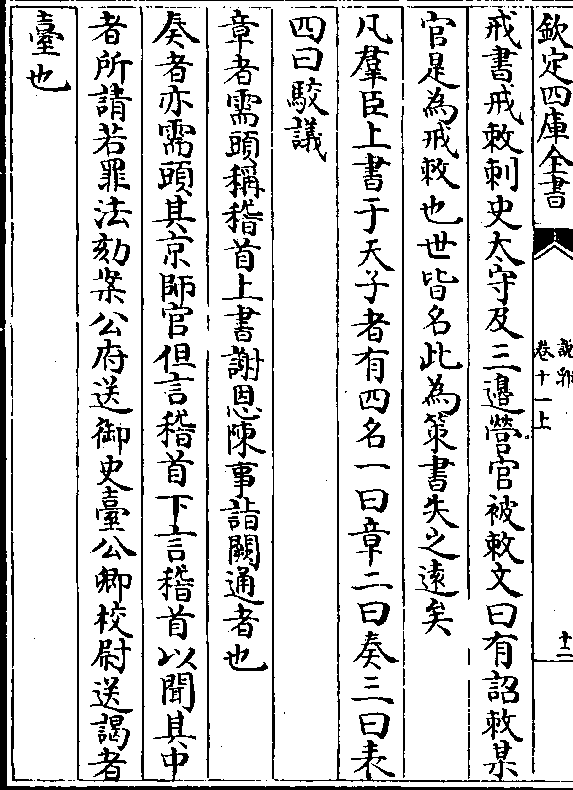 欽定四庫全書
說郛
卷十一上
十二
戒書戒敕刺史太守及三邊營官被敕文曰有詔敕某
官是為戒敕也世皆名此為策書失之遠矣
凡羣臣上書于天子者有四名一曰章二曰奏三曰表
四曰駮議
章者需頭稱稽首上書謝恩陳事詣闕通者也
奏者亦需頭其京師官但言稽首下言稽首以聞其中
者所請若罪法劾案公府送御史臺公卿校尉送謁者
臺也